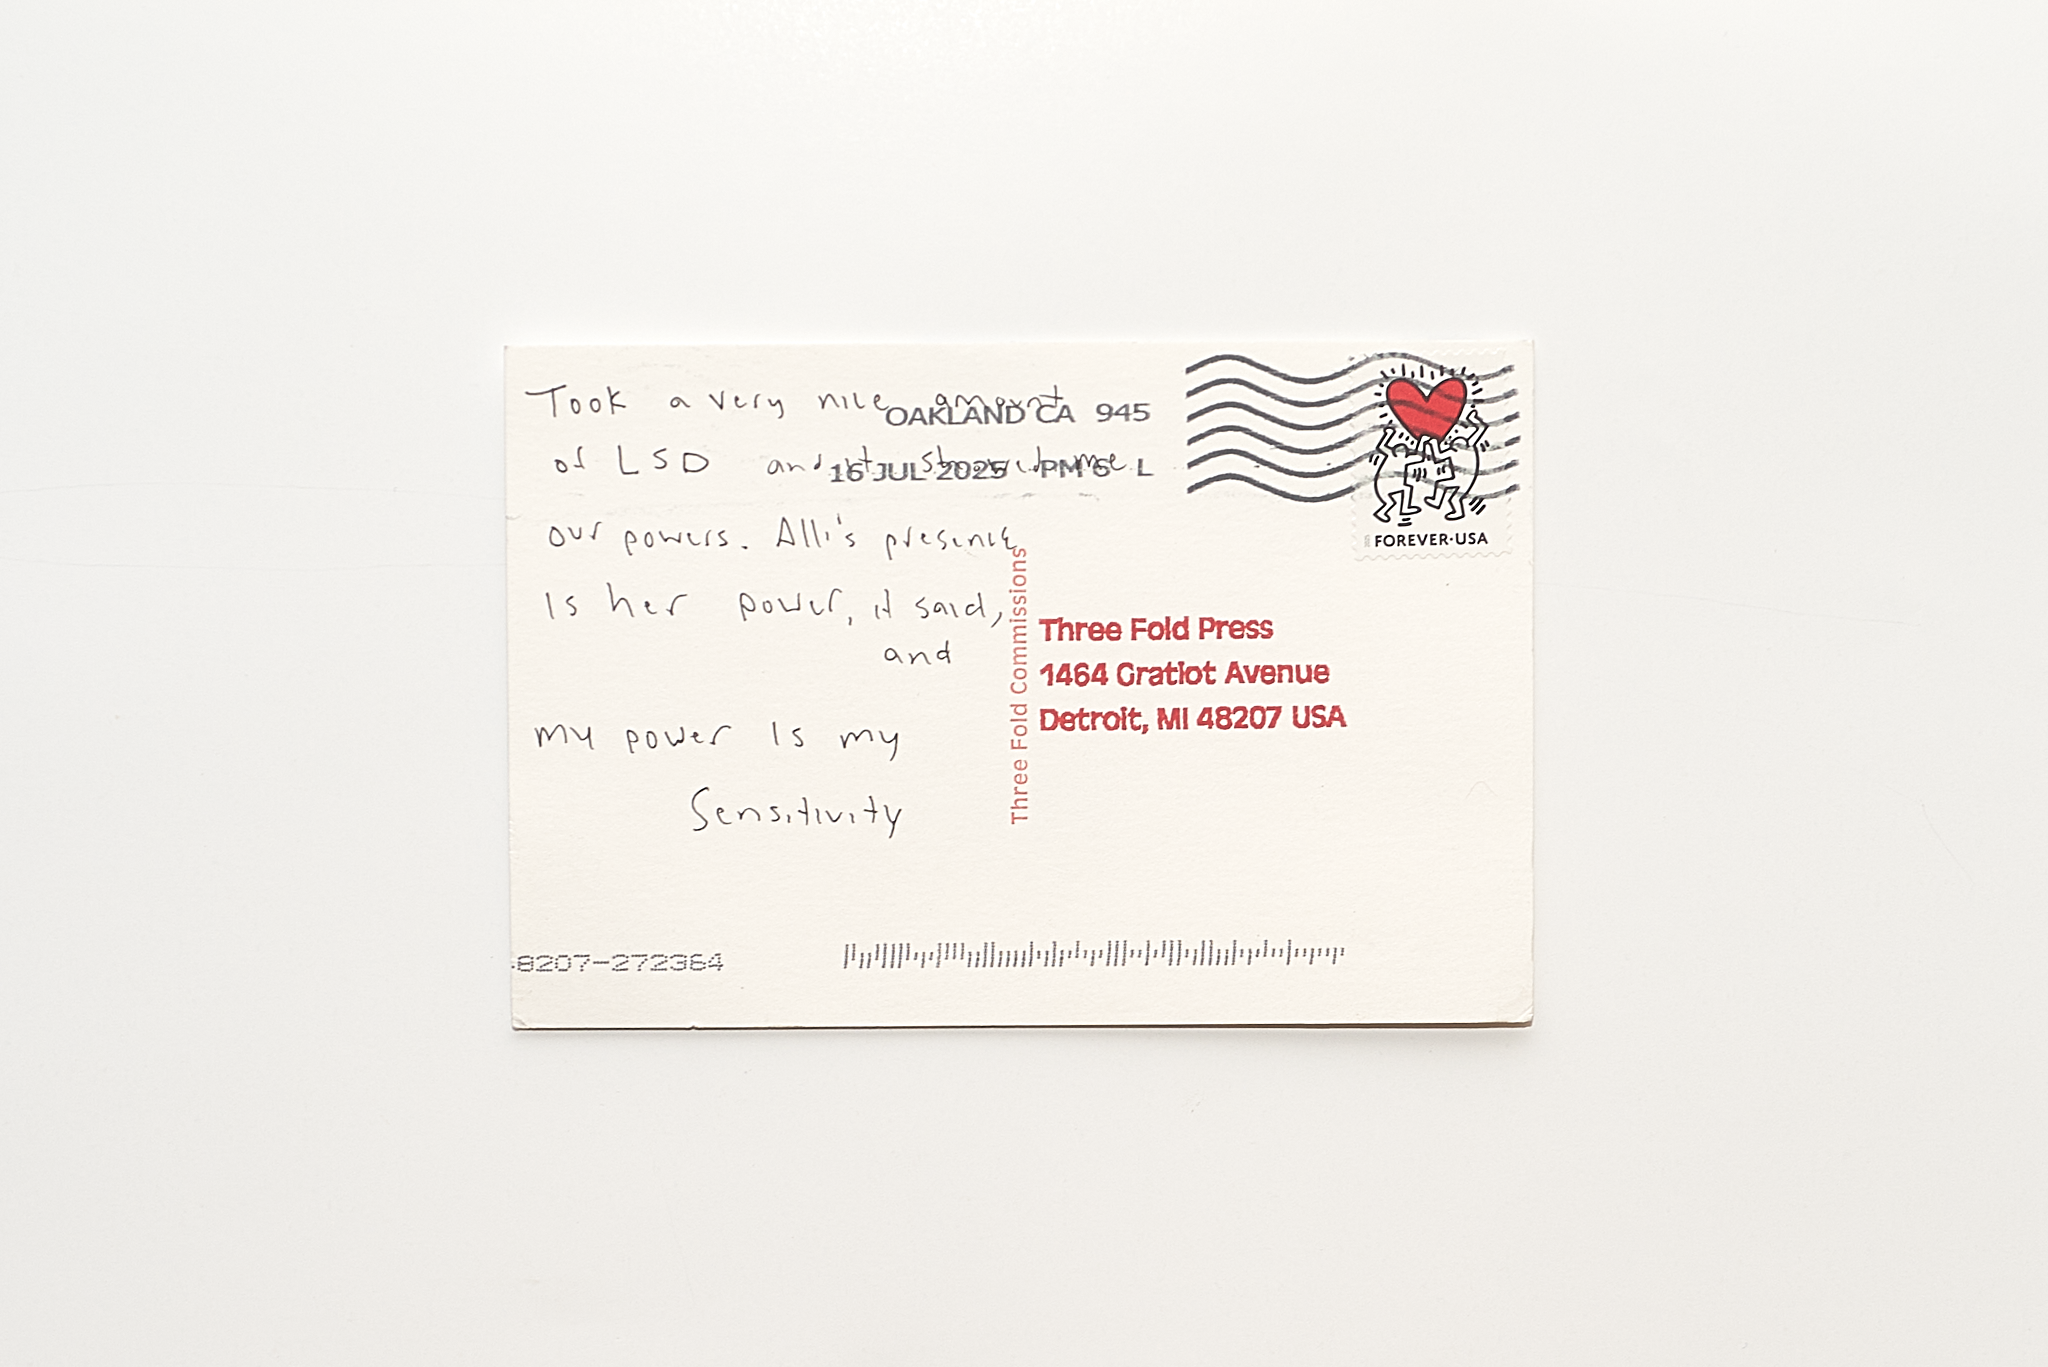 Took a very nice amount
of LSD and it showed me
our powers. Alli's presence
is her power, it said,
and
my power is my
Sensitivity
OAKLAND CA 945
16 JUL 2025 PM 6 L
FOREVER·USA
Three Fold Commissions
Three Fold Press
1464 Gratiot Avenue
Detroit, MI 48207 USA
8207-272364